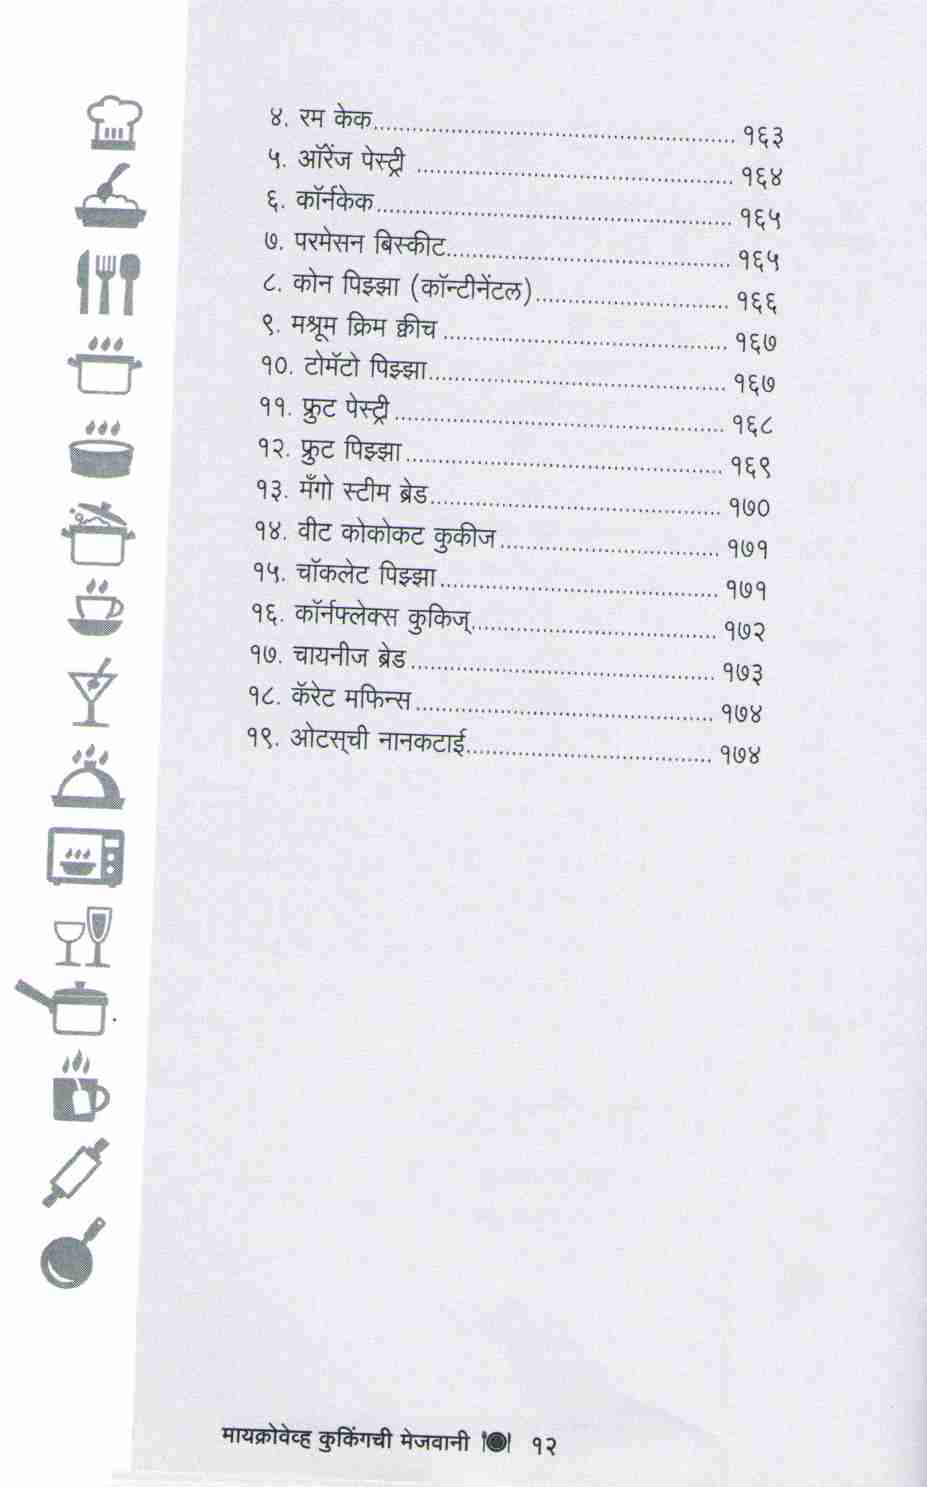 ४. रम केक.................................................. १६३
५. ऑरेंज पेस्ट्री ............................................ १६४
६. कॉर्नकेक................................................. १६५
७. परमेसन बिस्कीट....................................... १६५
८. कोन पिझ्झा (कॉन्टीनेंटल).......................... १६६
९. मश्रूम क्रिम क्वीच ....................................... १६७
१०. टोमॅटो पिझ्झा......................................... १६७
११. फ्रुट पेस्ट्री .............................................. १६८
१२. फ्रुट पिझ्झा ............................................ १६९
१३. मँगो स्टीम ब्रेड........................................ १७०
१४. वीट कोकोकट कुकीज .............................. १७१
१५. चॉकलेट पिझ्झा ...................................... १७१
१६. कॉर्नफ्लेक्स कुकिज्.................................. १७२
१७. चायनीज ब्रेड .......................................... १७३
१८. कॅरेट मफिन्स ......................................... १७४
१९. ओटस्ची नानकटाई.................................. १७४
मायक्रोवेव्ह कुकिंगची मेजवानी १२